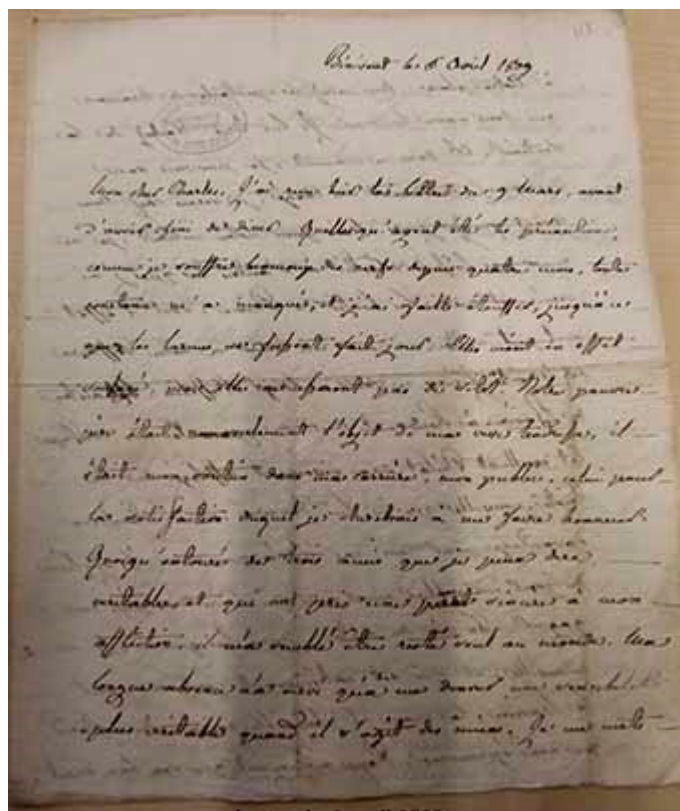 le 6 Avril 1829
Mon cher Charles. J'ai reçu hier ta lettre du 9 Mars, avant
d'avoir fini de diner. Quelles qu'ayent été tes précautions,
comme je souffre beaucoup des nerfs depuis quatre mois, toute
m'a manqué, et j'ai failli étouffer, jusqu'à ce
que les larmes se fussent fait jour. Elles m'ont en effet
mais elles ne cessent pas de Notre pauvre
père était l'objet de ma vive tendresse, il
était mon soutien dans ma carrière, mon public, celui pour
la satisfaction duquel je cherchais à me faire honneur.
Quoiqu'entouré de trois amis que je puis dire
véritables et qui ont pris une part sincère à mon
affliction, il m'a semblé être resté seul au monde. Une
longue absence n'a servi qu'à me donner une sensibilité
plus véritable quand il s'agit des miens. Je me mets